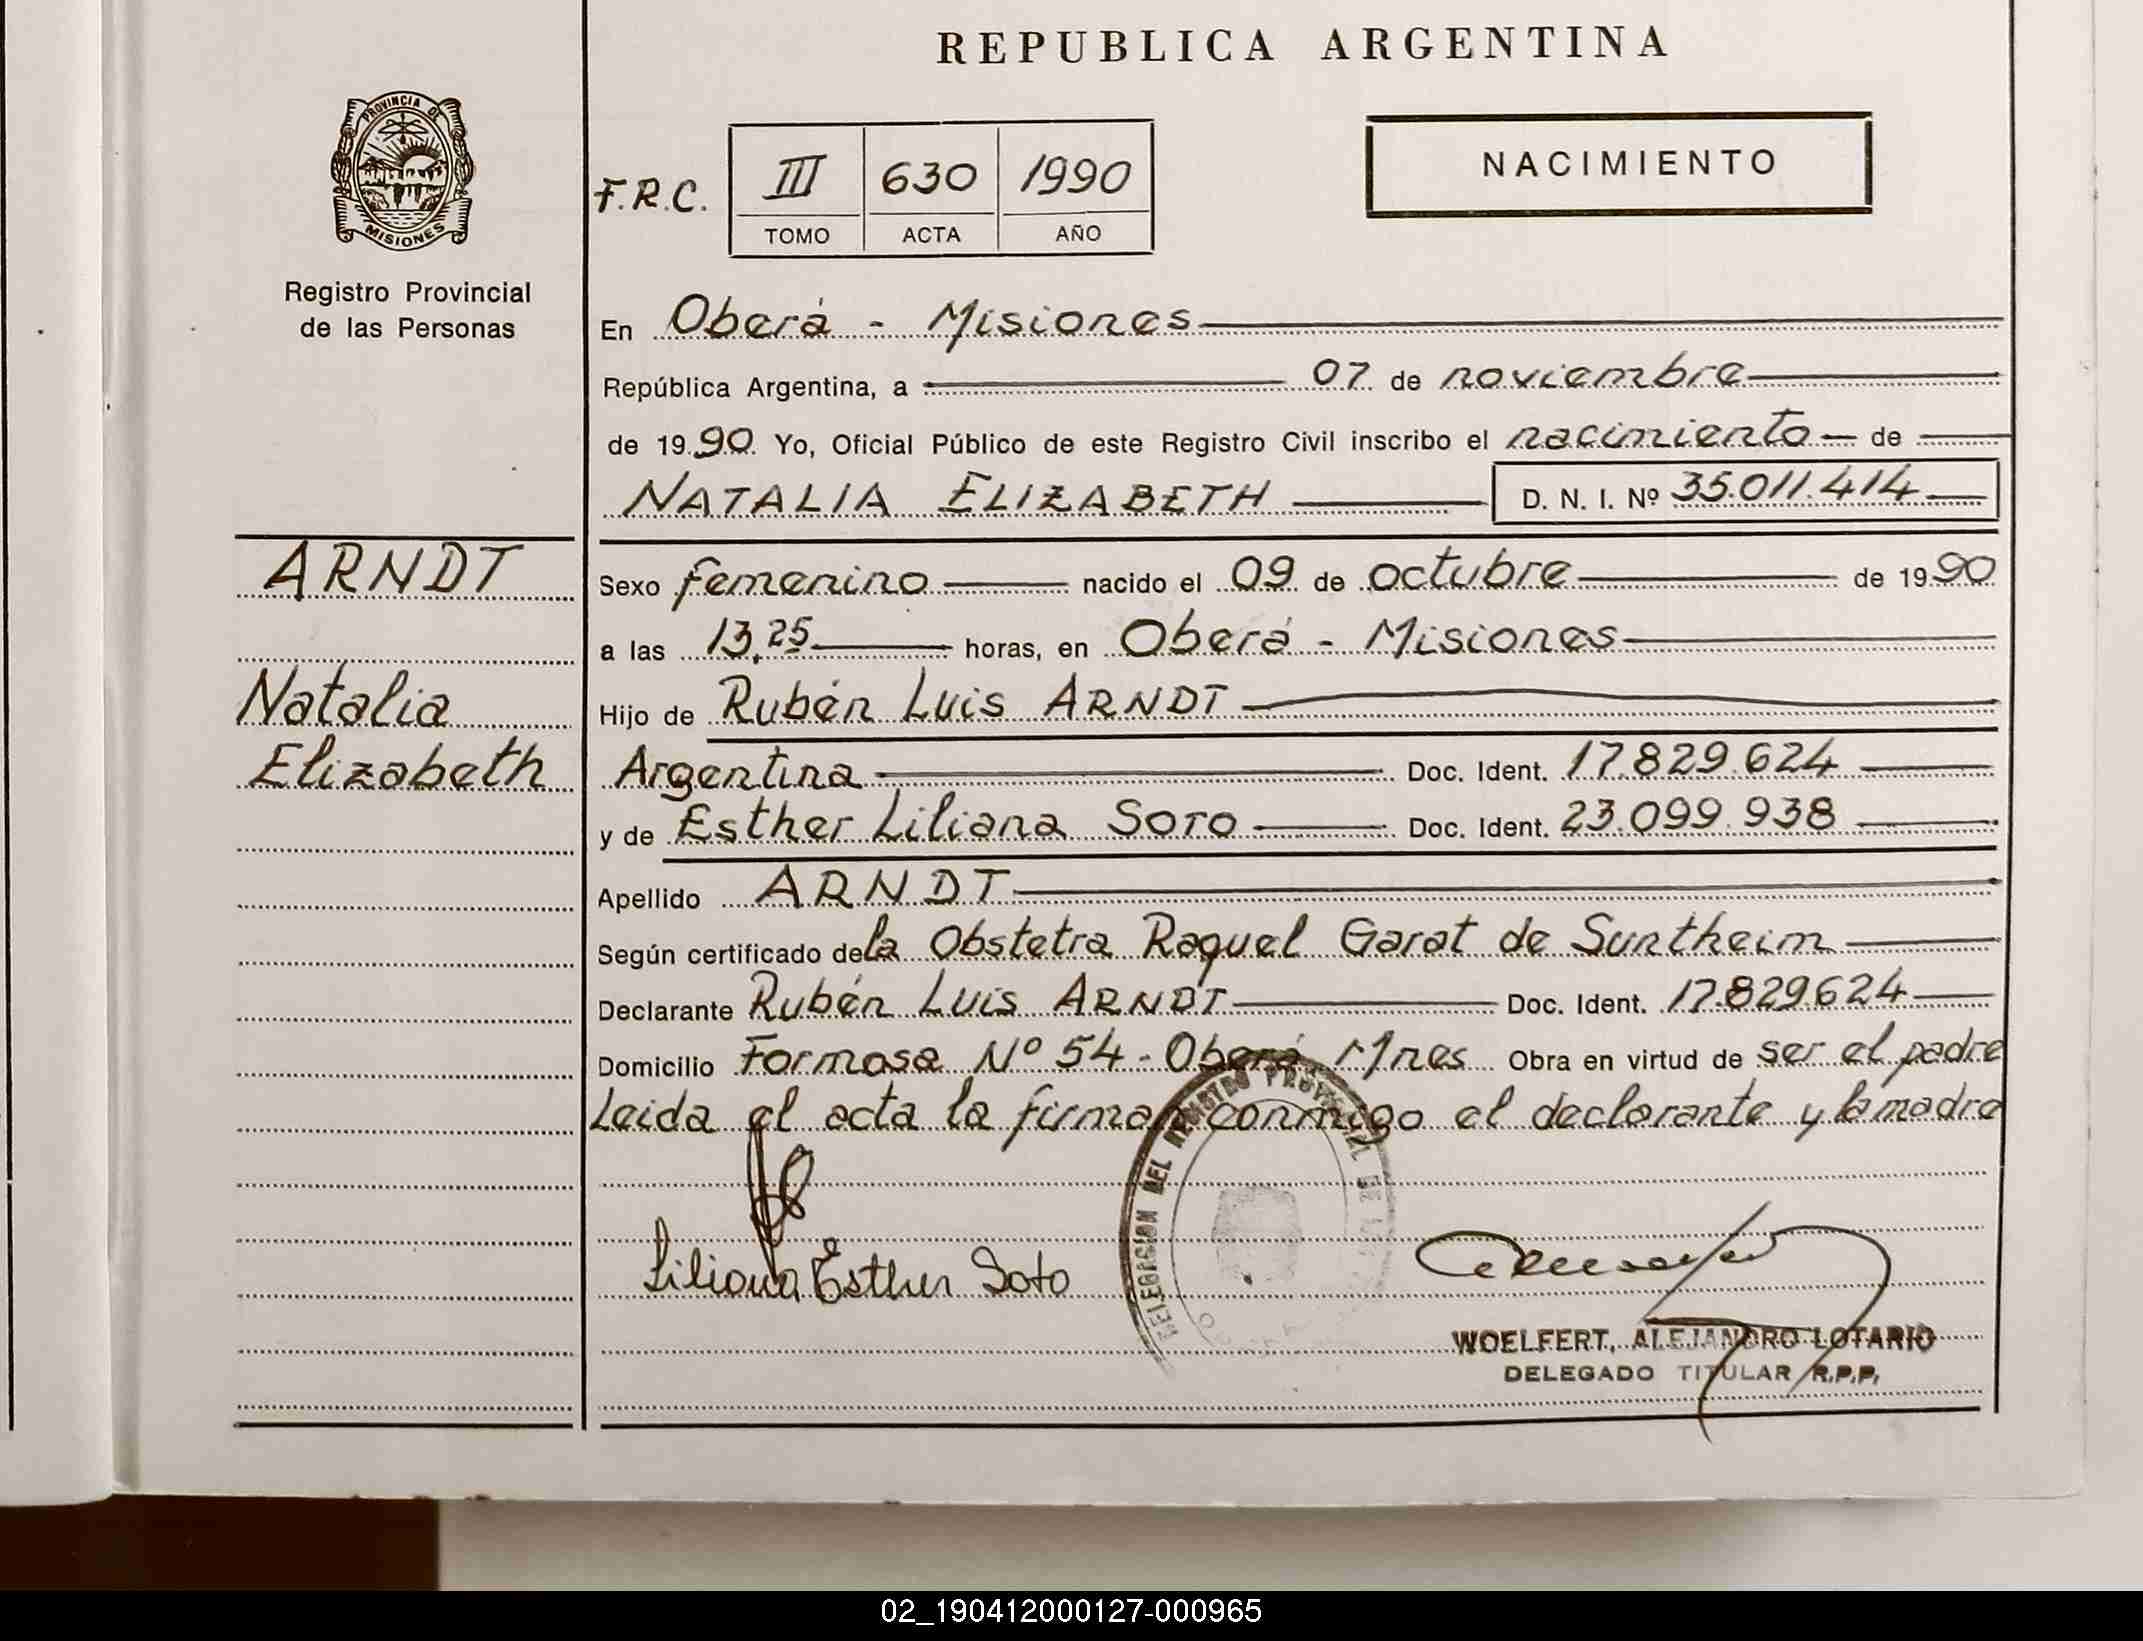 REPUBLICA ARGENTINA
PROVINCIA DE
MISIONES
Registro Provincial
de las Personas
NACIMIENTO
F.R.C. III 630 1990
TOMO ACTA AÑO
En Oberá - Misiones
República Argentina, a 07 de noviembre
de 1990 Yo, Oficial Público de este Registro Civil inscribo el nacimiento de
NATALIA ELIZABETH D. N. I. Nº 35.011.414
ARNDT
Natalia
Elizabeth
Sexo femenino nacido el 09 de octubre de 1990
a las 13,25 horas, en Oberá - Misiones
Hijo de Rubén Luis ARNDT
Argentina Doc. Ident. 17.829.624
y de Esther Liliana SOTO Doc. Ident. 23.099.938
Apellido ARNDT
Según certificado de la Obstetra Raquel Garat de Suntheim
Declarante Rubén Luis ARNDT Doc. Ident. 17.829.624
Domicilio Formosa Nº 54 - Oberá Mnes Obra en virtud de ser el padre
Leida el acta la firman conmigo el declarante y la madre
DELEGACION DEL REGISTRO PROVINCIAL DE
Liliana Esther Soto
WOELFERT, ALEJANDRO LOTARIO
DELEGADO TITULAR R.P.P.
02_190412000127-000965